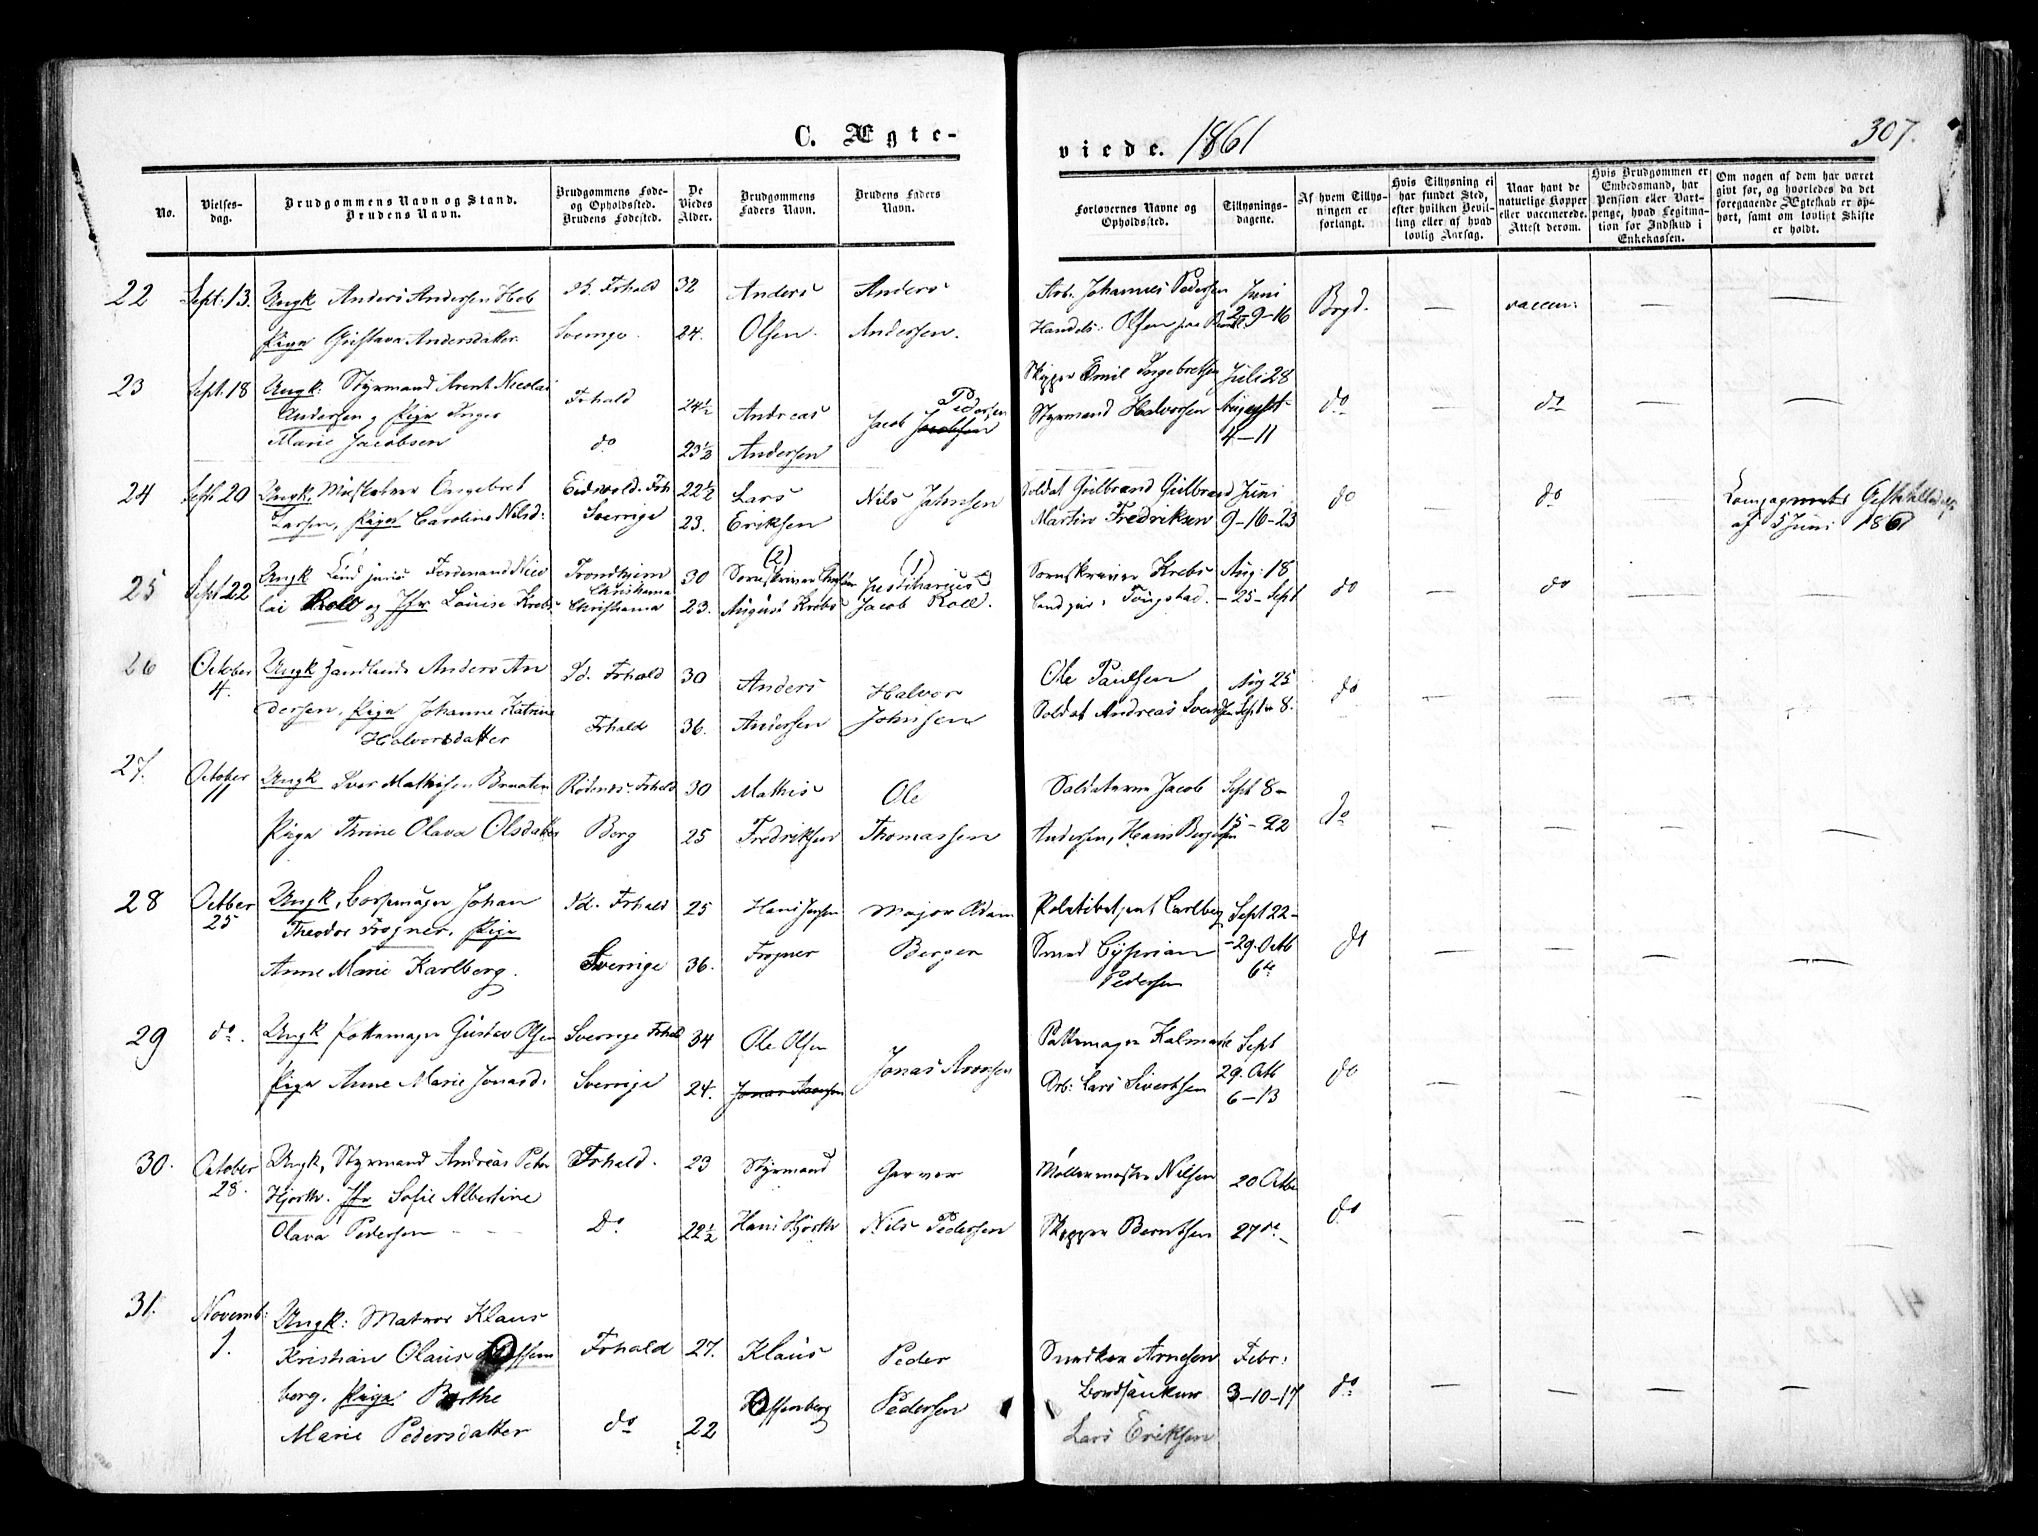 C. Ægte-
viede. 1861
307.
No.
Vielses-
dag.
Brudgommens Navn og Stand.
Brudens Navn.
Brudgommens Føde-
og Opholdssted.
Brudens Fødested.
De
Viedes
Alder.
Brudgommens
Faders Navn.
Brudens Faders
Navn.
Forlovernes Navne og
Opholdssted.
Tillysnings-
dagene.
Af hvem Tillys-
ningen er
forlangt.
Hvis Tillysning ei
har fundet Sted,
efter hvilken Bevil-
ling eller af hvad
lovlig Aarsag.
Naar havt de
naturlige Kopper
eller vaccinerede.
Attest derom.
Hvis Brudgommen er
Embedsmand, har
Pension eller Vart-
penge, hvad Legitima-
tion for Indskud i
Enkekassen.
Om nogen af dem har været
givt før, og hvorledes da det
foregaaende Ægteskab er op-
hørt, samt om lovligt Skifte
er holdt.
22 Sept: 13. Ungk Anders Andersen Frhald 32 Anders Anders Arb. Johannes Pedersen Juni
Pige Gustava Andersdatter Sverige 24. Olsen. Andersen. Handels: Olsen 2-9-16 Brgd. — vaccin: — —
23 Sept. 18 Ungk: Styrmand Arent Nicolai Frhald 24½ Andreas Jacob Pedersen Skipper Emil Ingebretsen Juli 28
Andersen og Pige Inger Styrmand Halvorsen August do — do — —
Marie Jacobsen do 23½ Andersen 4-11
24 Sept 20 Ungk. Engebret Eidsvold. Frh 22½ Lars Nils Jahnsen Soldat Gulbrand Gulbrand Juni do — do —
Larsen, Pige Caroline Nilsd: Sverige 23. Eriksen Martin Fredriksen 9-16-23 af 5 Juni 1861
25 Sept 22 Ungk Ferdinand Nico Trondhjem 30 (2) Sorenskriver (1) Sorenskriver Krebs Aug: 18
Christiania
lai Roll og Jfr Louise Krebs Christiania 23. August Krebs Jacob Roll. Tougstad. — 25 - Sept do — do — —
26 October Ungk Anders An Id. Frhald 30 Anders Halvor Ole Paulsen Aug 25
4.
dersen, Pige Johanne Katrine Frhald 36. Andersen Johnsen Soldat Andreas Svendsen Septr 8. do — — — —
Halvorsdatter
27. October Ungk Iver Mathisen Braaten Rødenes. Frhald 30 Mathis Ole Soldaterne Jacob Sept 8-
11
Pige Thrine Olava Olsdatter Berg 25 Fredriksen Thomassen Andersen, Hans 15-22 do — — — —
28 Octber Ungk, Johan Id. Frhald 25 Hans Major Adam Politibetjent Carlberg Sept 22-
25
Theodor Fogner. Pige Smed Cyprian -29. Octb do — — — —
Anne Marie Karlberg. Sverrige 36. Fogner Berger Pedersen 6te
29 do. Ungk Pottemager Gustav Olsen Sverrige Frhald 34 Ole Olsen Jonas Aronsen Pottemager Kalmark Sept
Pige Anne Marie Jonasd: Sverrige 24. Jonas Aronsen Arb: Lars Sivertsen 29. Octb do — — — —
6-13
30. October Ungk, Styrmand Andreas Peter Frhald. 23 Styrmand Garver Møllermester Nilsen 20 Octbr
28.
Hjorth. Jfr Sofie Albertine
Olava Pedersen do 22½ Hans Hjorth Nils Pedersen Skipper Berntsen 27 do - do — — — —
31. Novemb: Ungk: Matros Klaus
1.
Kristian Olaus Offen Frhald 27. Klaus Peder Snedker Arnesen Febr:
berg. Pige Berthe Offenberg Pedersen 3-10-17 do — — — —
Marie Pedersdatter do 22 Lars Eriksen